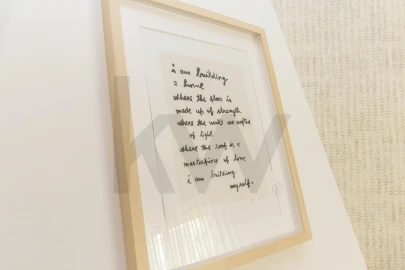 i am building
a home
where the floor is
made up of strength
where the walls are crafted
of light
where the roof is a
masterpiece of love
i am building
myself
kw